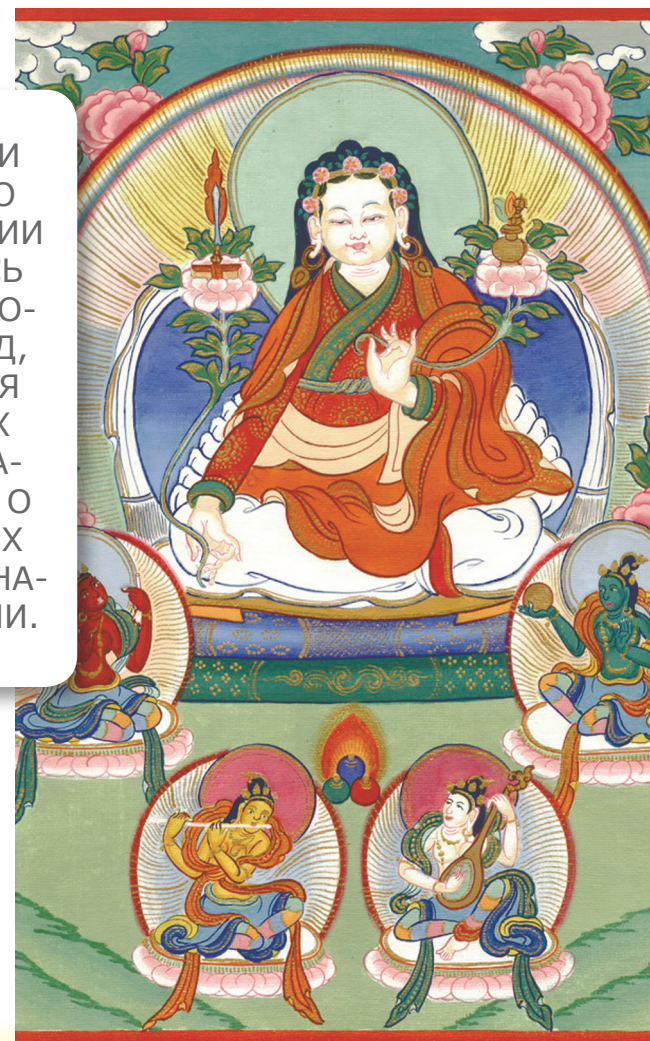 И
О
ИИ
Ь
О-
Д,
Я
Х
А-
О
Х
НА-
И.